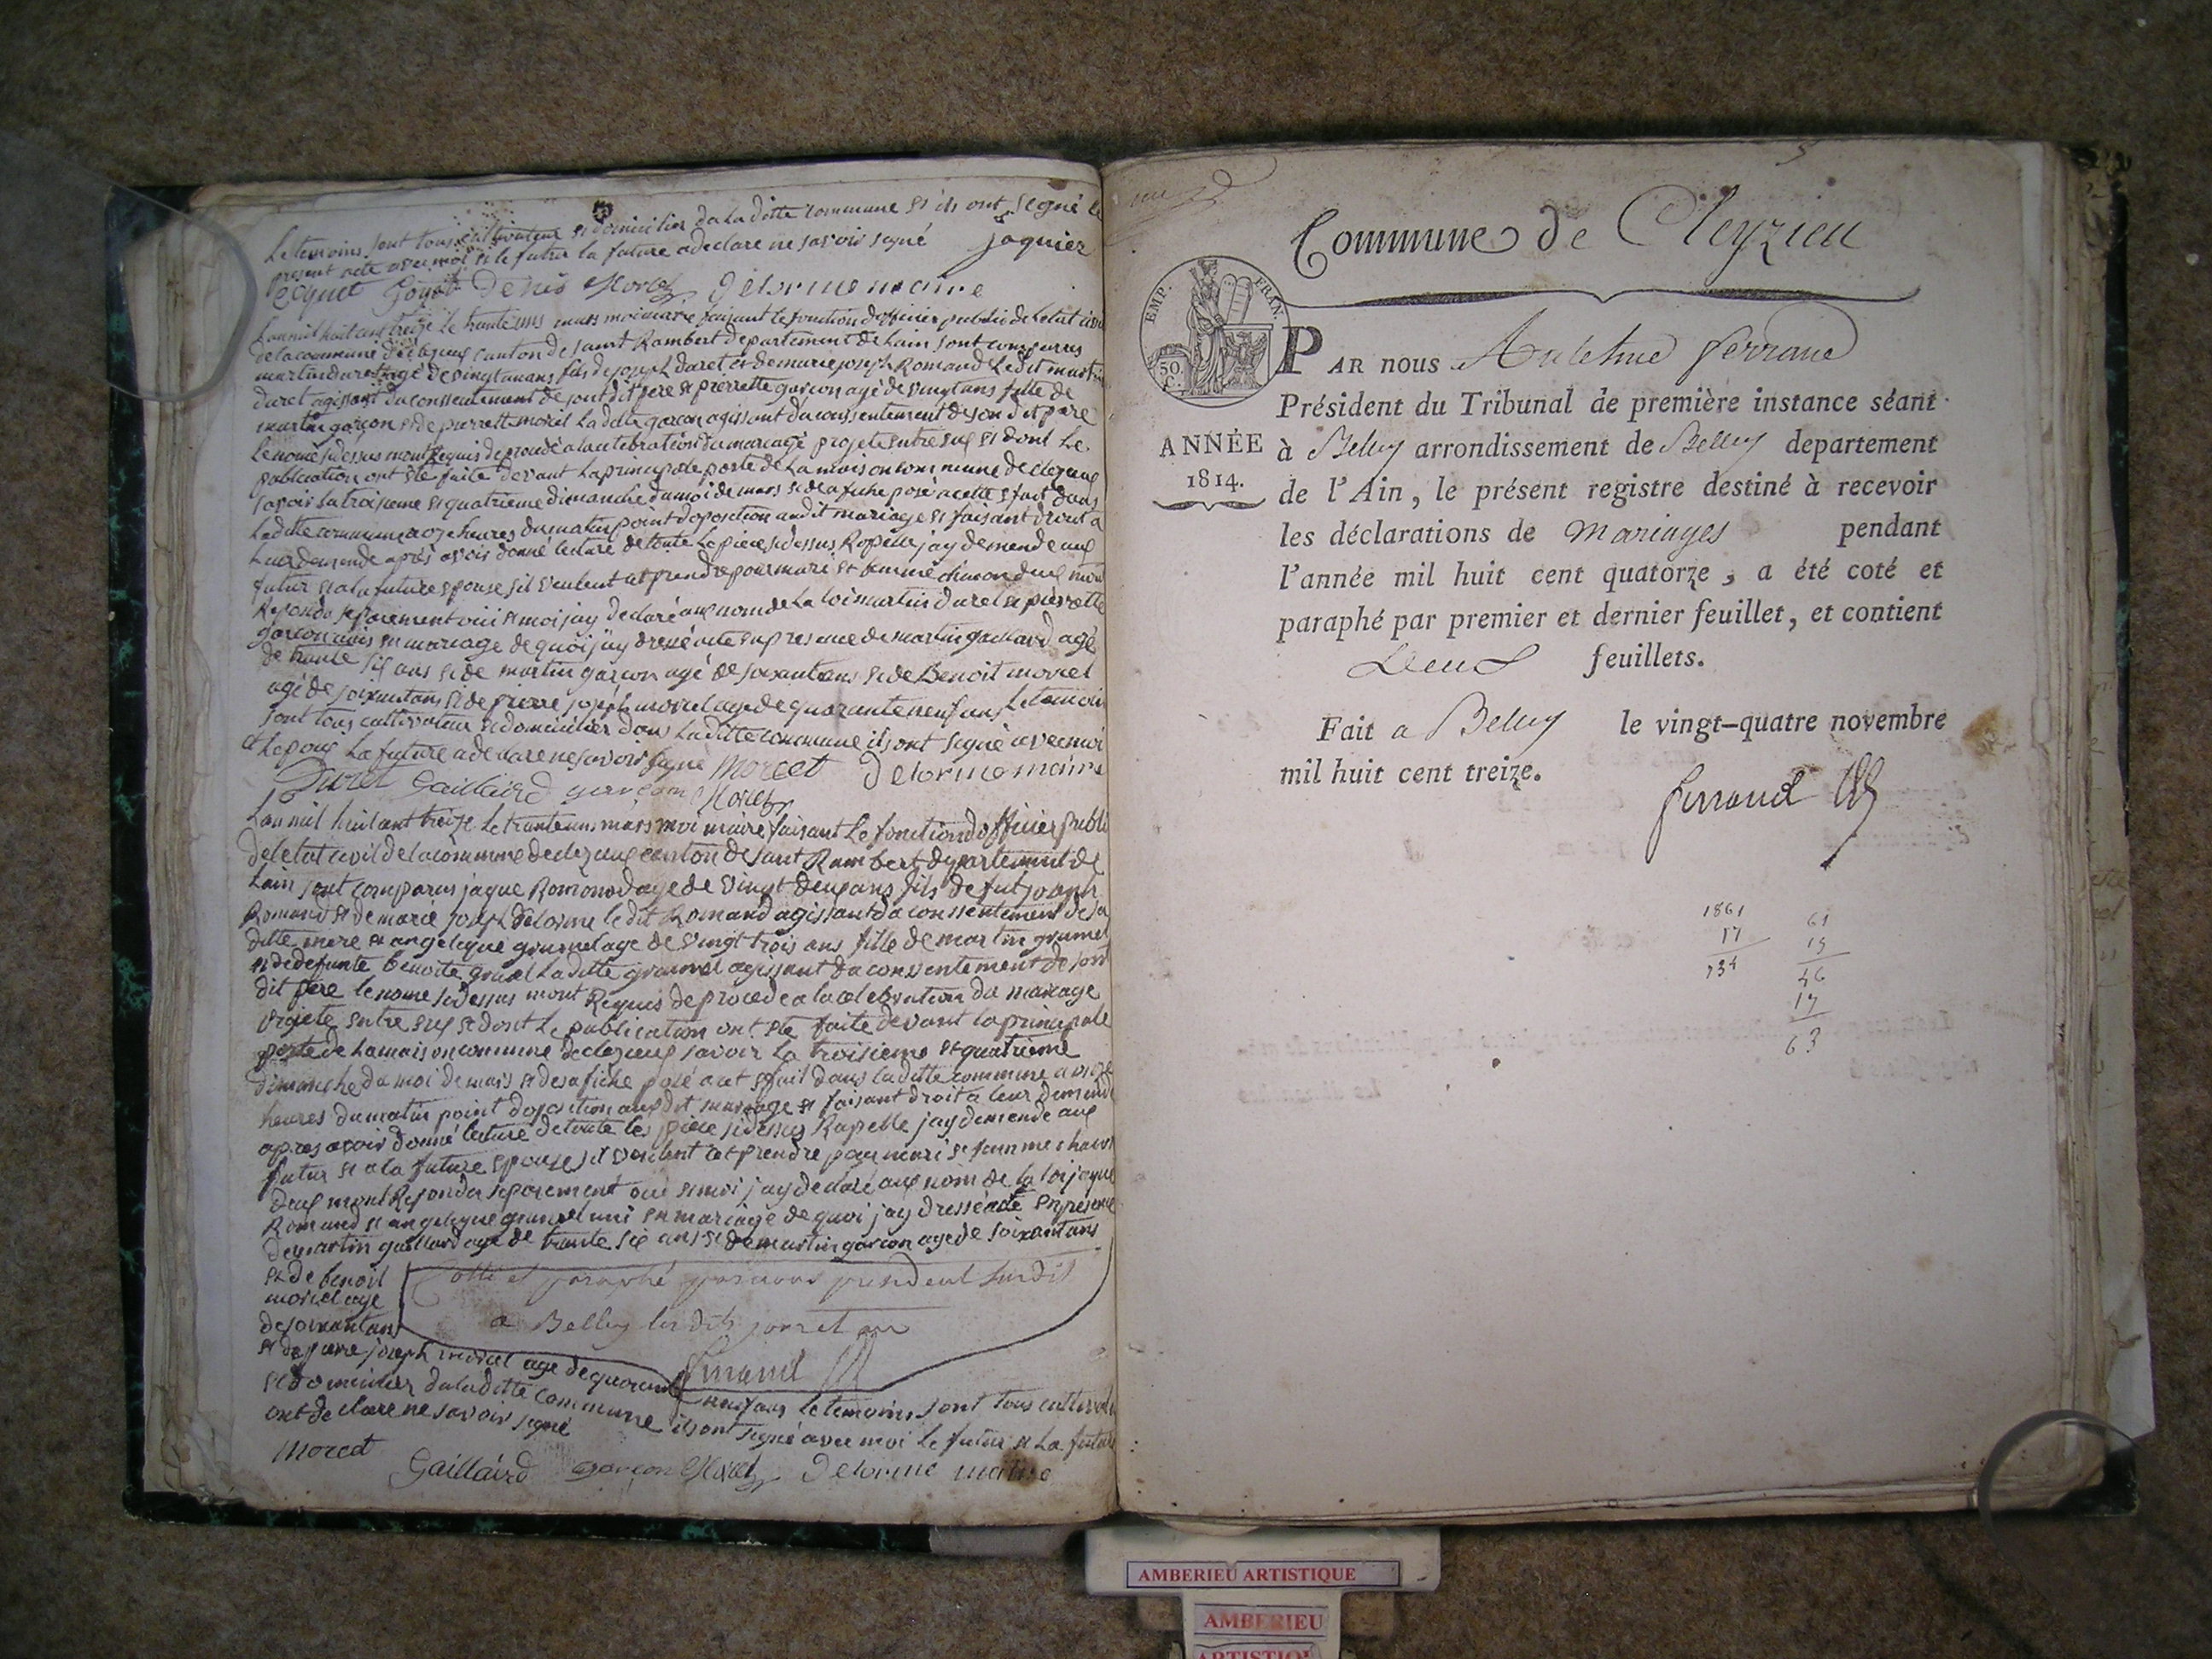 Le temoins sont tous cultivateur et domicilier da la ditte commune et ils ont segné le
present acte avec moi et le futur la future a declare ne savoir segné jaquier
Denis Morel Delorme maire
Lan mil huit cent treize le trante un mars moi maire faisant le fonction dofficier public de letat civil
de la commune de clezeux canton de saint Rambert departement de Lain sont comparus
martin duret agé de vingt un ans fils de joseph duret et de marie joseph Romand Le dit martin
duret agissant du conssentement de sont dit pere et pierrette garcon agé de vingt ans fille de
martin garcon et de pierrette morel La ditte garcon agissant du conssentement de son dit pere
Le nomé sidessus mont Requis de procedé a la celebration du mariage projeté entre eux et dont Le
publication ont ete faite devant La principale porte de La maison commune de clezeux
savoir La troisieme et quatrieme dimanche du moi de mars et de afiche posé a cette efait dans
La ditte commune a onze heures du matin point doposition au dit mariage et faisant droit a
Leur demende après avoir donné lecture de toute La piece sidessus Rapellé jay demende aux
futur et a la future epouse sil veulent cet prendre pour mari et femme chacon deux mont
Repondu separement oui et moi jay declaré aux nom de La loi martin duret et pierrette
garcon unis en mariage de quoi jay dressé acte en presence de martin gaillard agé
de trante six ans et de martin garcon agé de soixantans et de Benoit morel
agé de soixantans et de pierre joseph morel age de quarante neuf ans Le temoin
sont tous cultivateur et domicilier dans La ditte commune ils ont segné avec moi
et Lepoux La future a declare ne savoir segné Morcet Delorme maire
Duret Gaillaird garcon Morel
Lan mil huit cent treize Le trante un mars moi maire faisant Le fonction dofficier publi
de letat civil de la commune de clezeux canton de saint Rambert departement de
Lain sont comparus jaque Romand age de vingt deux ans fils de fut joseph
Romand et de marie joseph delorme le dit Romand agissant da conssentement de sa
ditte mere et angelique grumel age de vingt trois ans fille de martin grumel
et de defunte benoite gruel La ditte grumel agissant da conssentement de sont
dit pere le nome sidessus mont Requis de procede a la celebration du mariage
projete entre eux et dont Le publication ont ete faite devant la principale
porte de La maison commune de clezeux savoir La troisieme et quatrieme
dimanche du moi de mars et des afiche posé a cet efait dans la ditte commune a onze
heures du matin point doposition aux dit mariage et faisant droit a leur demende
apres avoir donné lecture de toute les piece sidessus Rapelle jay demende aux
futur et a la future epouse sil veulent cet prendre pour mari et femme chacon
deux mont Repondu separement oui et moi jay declaré aux nom de la loi jaque
Romand et angelique grumel uni en mariage de quoi jay dressé acte en presence
de martin gaillard age de trante six ans et de martin garcon age de soixantans
et de benoit
morel age
de soixantans
Cotté et paraphé par nous president susdit
a Belley les dits jour et an
ferrand
et de pierre joseph morel age de quarante neuf ans Le temoins sont tous cultivateur
et domicilier da la ditte commune ils ont segné avec moi Le futur et La future
ont declare ne savoir segné
Morcet Gaillaird garcon Morel Delorme maire
Commune de Cleyzieu
EMP. FRAN.
50 C.
ANNÉE
1814.
PAR NOUS Antelme ferrand
Président du Tribunal de première instance séant
à Belley arrondissement de Belley departement
de l'Ain, le présent registre destiné à recevoir
les déclarations de Mariages pendant
l'année mil huit cent quatorze, a été coté et
paraphé par premier et dernier feuillet, et contient
Deux feuillets.
Fait a Belley le vingt-quatre novembre
mil huit cent treize.
ferrand
1861
17
734
61
15
46
17
63
AMBERIEU ARTISTIQUE
AMBERIEU
ARTISTIQUE